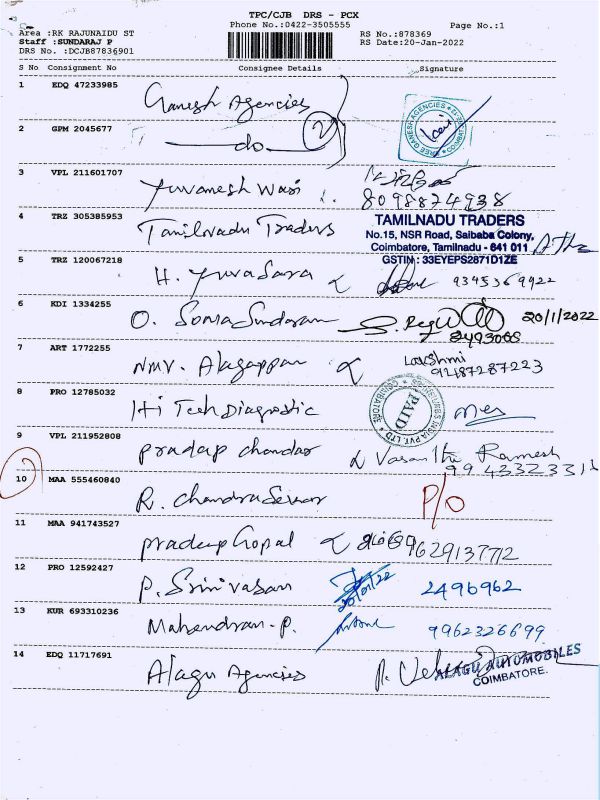 TPC/CJB DRS - PCX
Phone No.:0422-3505555
Page No.:1
Area :RK RAJUNAIDU ST
Staff :SUNDARAJ P
DRS No. :DCJB87836901
RS No.:878369
RS Date:20-Jan-2022
S No Consignment No Consignee Details Signature
1 EDQ 47233985 Ganesh Agencies
2 GPM 2045677 do 2
3 VPL 211601707 Yuvanesh
8098874938
4 TRZ 305385953 Tamilnadu Traders
TAMILNADU TRADERS
No.15, NSR Road, Saibaba Colony,
Coimbatore, Tamilnadu - 641 011
GSTIN : 33EYEPS2871D1ZE
5 TRZ 120067218 H. Yuvasara 9345369922
6 KDI 1334255 O. Somasundaram 20/1/2022
7 ART 1772255 Alagappan Lakshmi
8 PRO 12785032 Hi Tech Diagnostic
PAID
COIMBATORE
9 VPL 211952808 Pradeep chandar Vasanthi Ramesh
10 MAA 555460840 R. Chandrasekar P/O
11 MAA 941743527 Pradeep Gopal 9629137712
12 PRO 12592427 P. Srinivasan 20/01/22 2496962
13 KUR 693310236 Mahendran.P. 9962326699
14 EDQ 11717691 Alagu Agencies
ALAGU AUTOMOBILES
COIMBATORE.